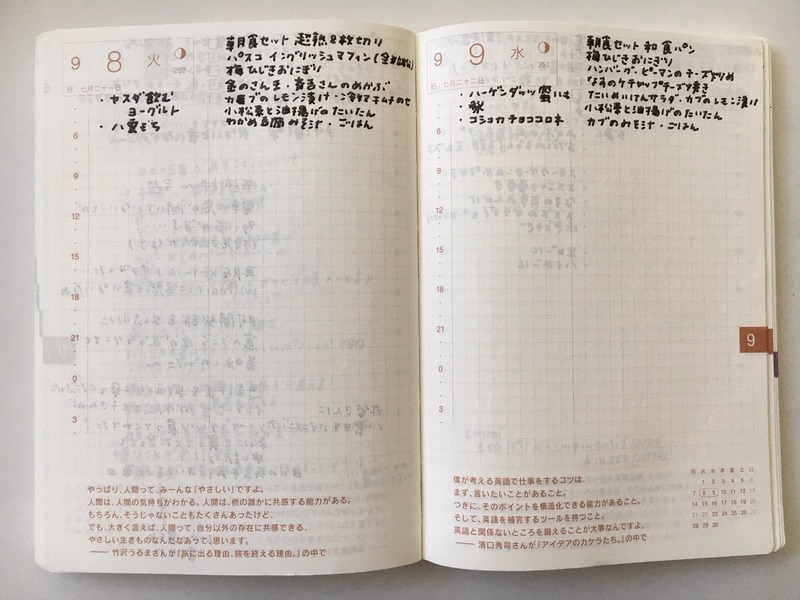 9 8 火
252
旧:七月二十一日
・ヤスダ飲む
ヨーグルト
・八雲もち
朝食セット 超熟8枚切り
パスコ イングリッシュマフィン
梅ひじきおにぎり
金のさんま・
カブのレモン漬け・冷
小松菜と油揚げのたいたん
わかめ豆腐みそ汁・ごはん
6
9
12
15
18
21
0
3
やっぱり、人間って、みーんな「やさしい」ですよ。
人間は、人間の気持ちがわかる。人間は、他の誰かに共感する能力がある。
もちろん、そうじゃないこともたくさんあったけど、
でも、大きく言えば、人間って、自分以外の存在に共感できる、
やさしい生きものなんだなあって、思います。
——竹沢うるまさんが『旅に出る理由、旅を終える理由。』の中で
9 9 水
253
旧:七月二十二日
・ハーゲンダッツ 蜜いも
・コショカチョココロネ
朝食セット 和食パン
梅ひじきおにぎり
ハンバーグ・ピーマンのチーズ
なすのケチャップチーズ焼き
サラダ、カブのレモン漬け
小松菜と油揚げのたいたん
カブのみそ汁・ごはん
6
9
12
15
18
21
0
3
9
僕が考える英語で仕事をするコツは、
まず、言いたいことがあること。
つぎに、そのポイントを構造化できる能力があること。
そして、英語を補完するツールを持つこと。
英語と関係ないところを鍛えることが大事なんですよ。
——濱口秀司さんが『アイデアのカケラたち。』の中で
月 火 水 木 金 土 日
1 2 3 4 5 6
7 8 9 10 11 12 13
14 15 16 17 18 19 20
21 22 23 24 25 26 27
28 29 30